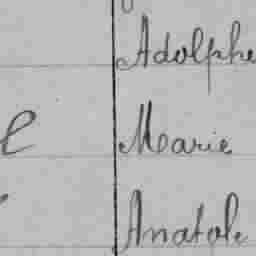 Adolphe
e Marie
Anatole